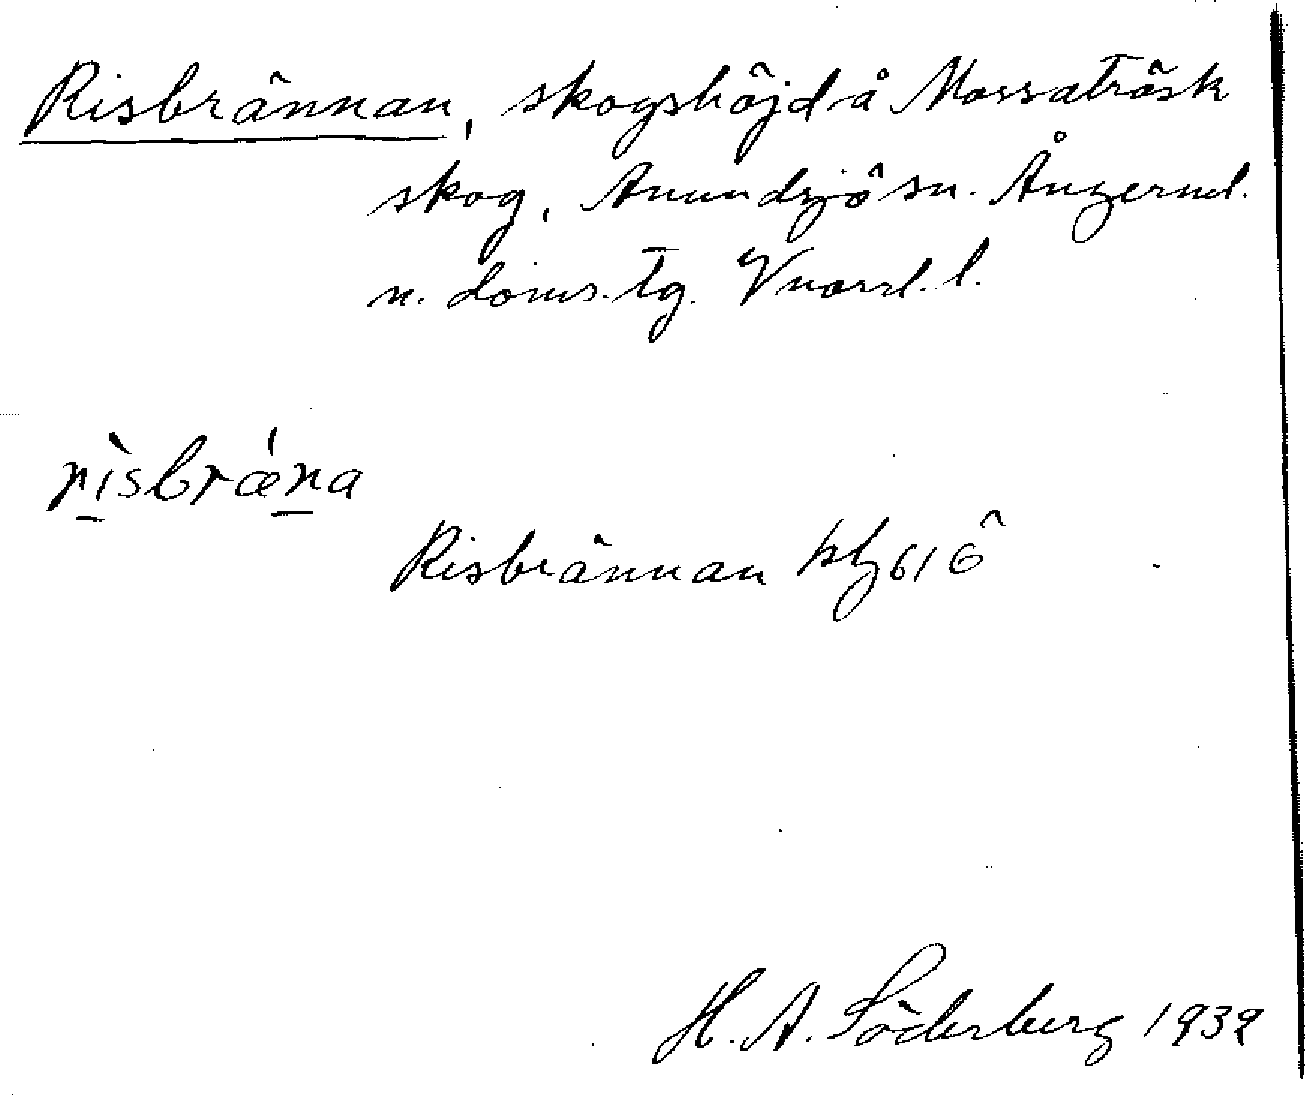 Risbrännan, skogshöjd å Mossaträsk
skog, Anundsjö sn. Ångerml.
n. doms. tg. Vnorrl. l.
rìsbrǽna
Risbrännan kbl 61 ö
H. A. Söderberg 1939